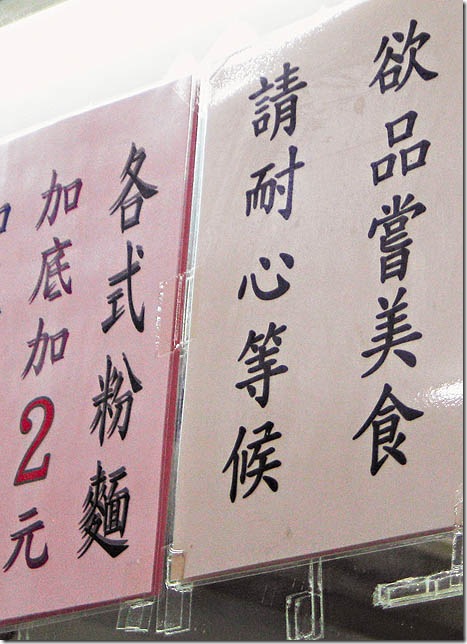 欲品嘗美食
請耐心等候
各式粉麵
加底加2元